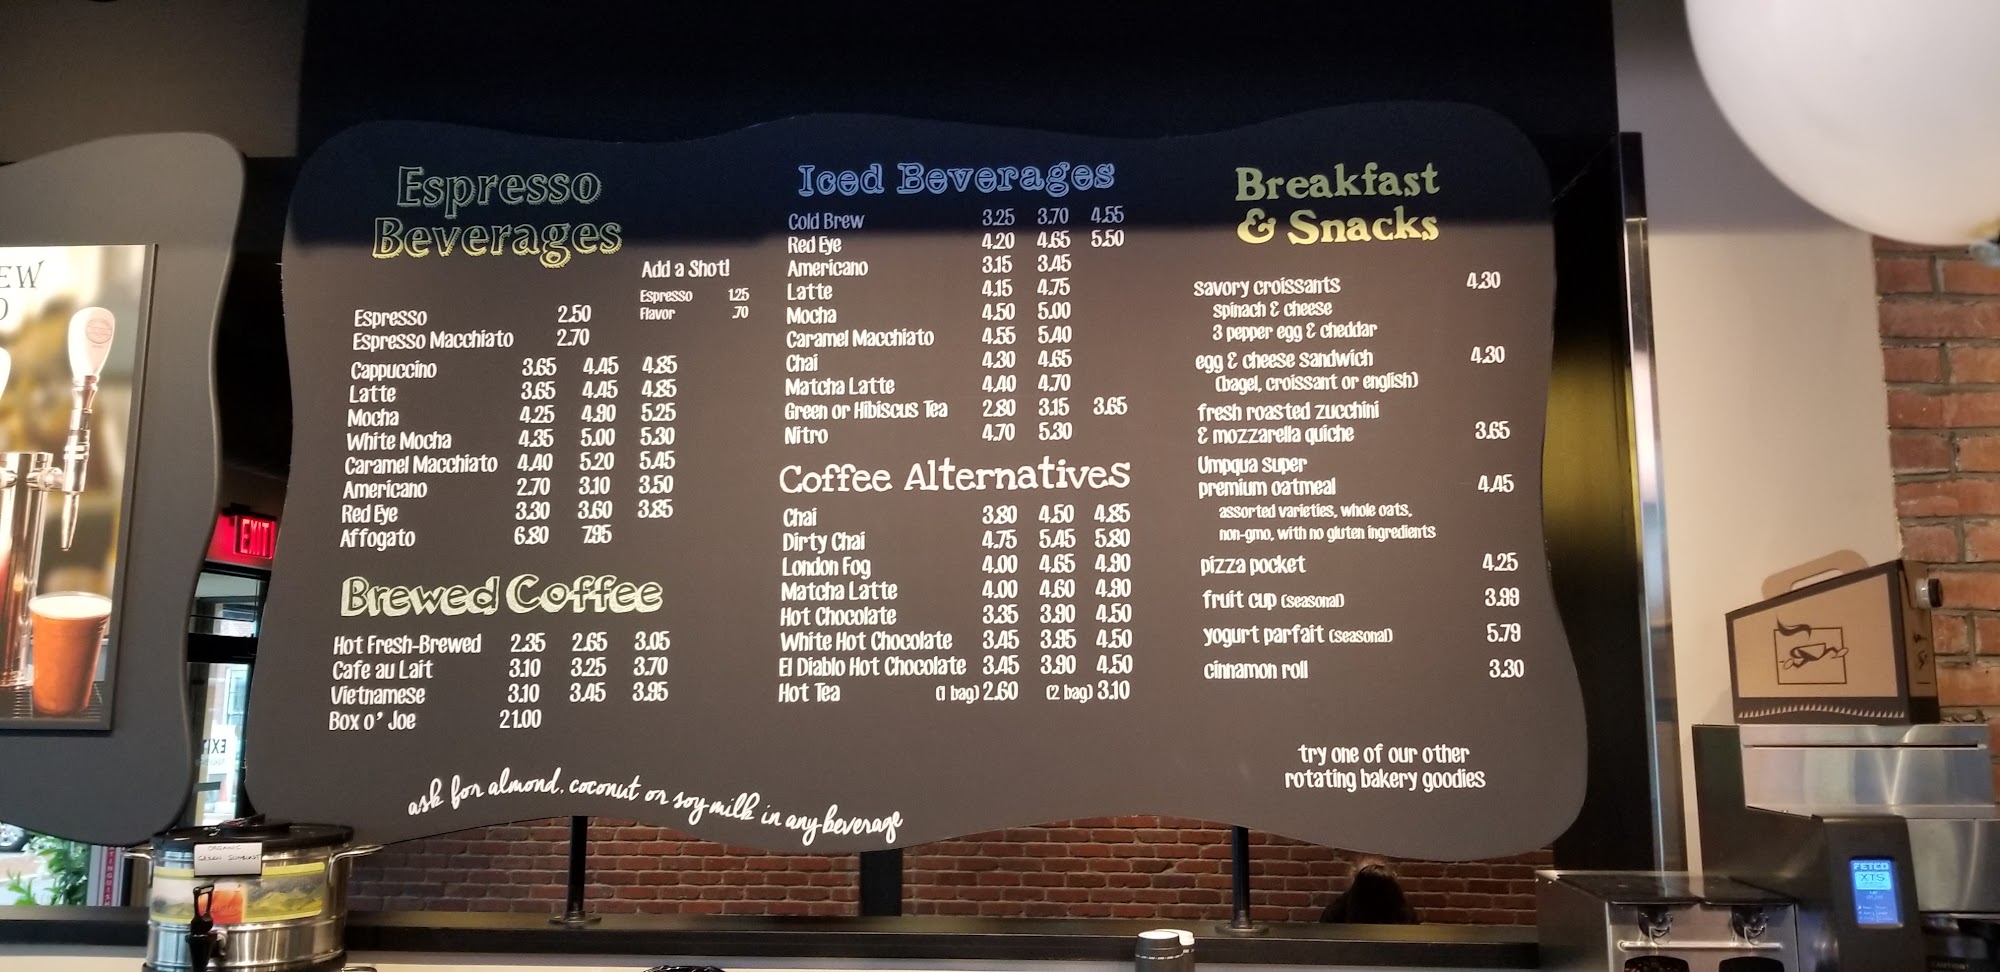 EW
EXIT
Espresso
Beverages
Add a Shot!
Espresso 1.25
Flavor .70
Espresso 2.50
Espresso Macchiato 2.70
Cappuccino 3.65 4.45 4.85
Latte 3.65 4.45 4.85
Mocha 4.25 4.90 5.25
White Mocha 4.35 5.00 5.30
Caramel Macchiato 4.40 5.20 5.45
Americano 2.70 3.10 3.50
Red Eye 3.30 3.60 3.85
Affogato 6.80 7.95
Brewed Coffee
Hot Fresh-Brewed 2.35 2.65 3.05
Cafe au Lait 3.10 3.25 3.70
Vietnamese 3.10 3.45 3.95
Box o' Joe 21.00
ask for almond, coconut or soy milk in any beverage
Iced Beverages
Cold Brew 3.25 3.70 4.55
Red Eye 4.20 4.65 5.50
Americano 3.15 3.45
Latte 4.15 4.75
Mocha 4.50 5.00
Caramel Macchiato 4.55 5.40
Chai 4.30 4.65
Matcha Latte 4.40 4.70
Green or Hibiscus Tea 2.80 3.15 3.65
Nitro 4.70 5.30
Coffee Alternatives
Chai 3.80 4.50 4.85
Dirty Chai 4.75 5.45 5.80
London Fog 4.00 4.65 4.90
Matcha Latte 4.00 4.60 4.90
Hot Chocolate 3.35 3.90 4.50
White Hot Chocolate 3.45 3.95 4.50
El Diablo Hot Chocolate 3.45 3.90 4.50
Hot Tea (1 bag) 2.60 (2 bag) 3.10
Breakfast
& Snacks
savory croissants 4.30
spinach & cheese
3 pepper egg & cheddar
egg & cheese sandwich 4.30
(bagel, croissant or english)
fresh roasted zucchini
& mozzarella quiche 3.65
Umpqua super
premium oatmeal 4.45
assorted varieties, whole oats,
non-gmo, with no gluten ingredients
pizza pocket 4.25
fruit cup (seasonal) 3.99
yogurt parfait (seasonal) 5.79
cinnamon roll 3.30
try one of our other
rotating bakery goodies
ORGANIC
FETCO
XTS